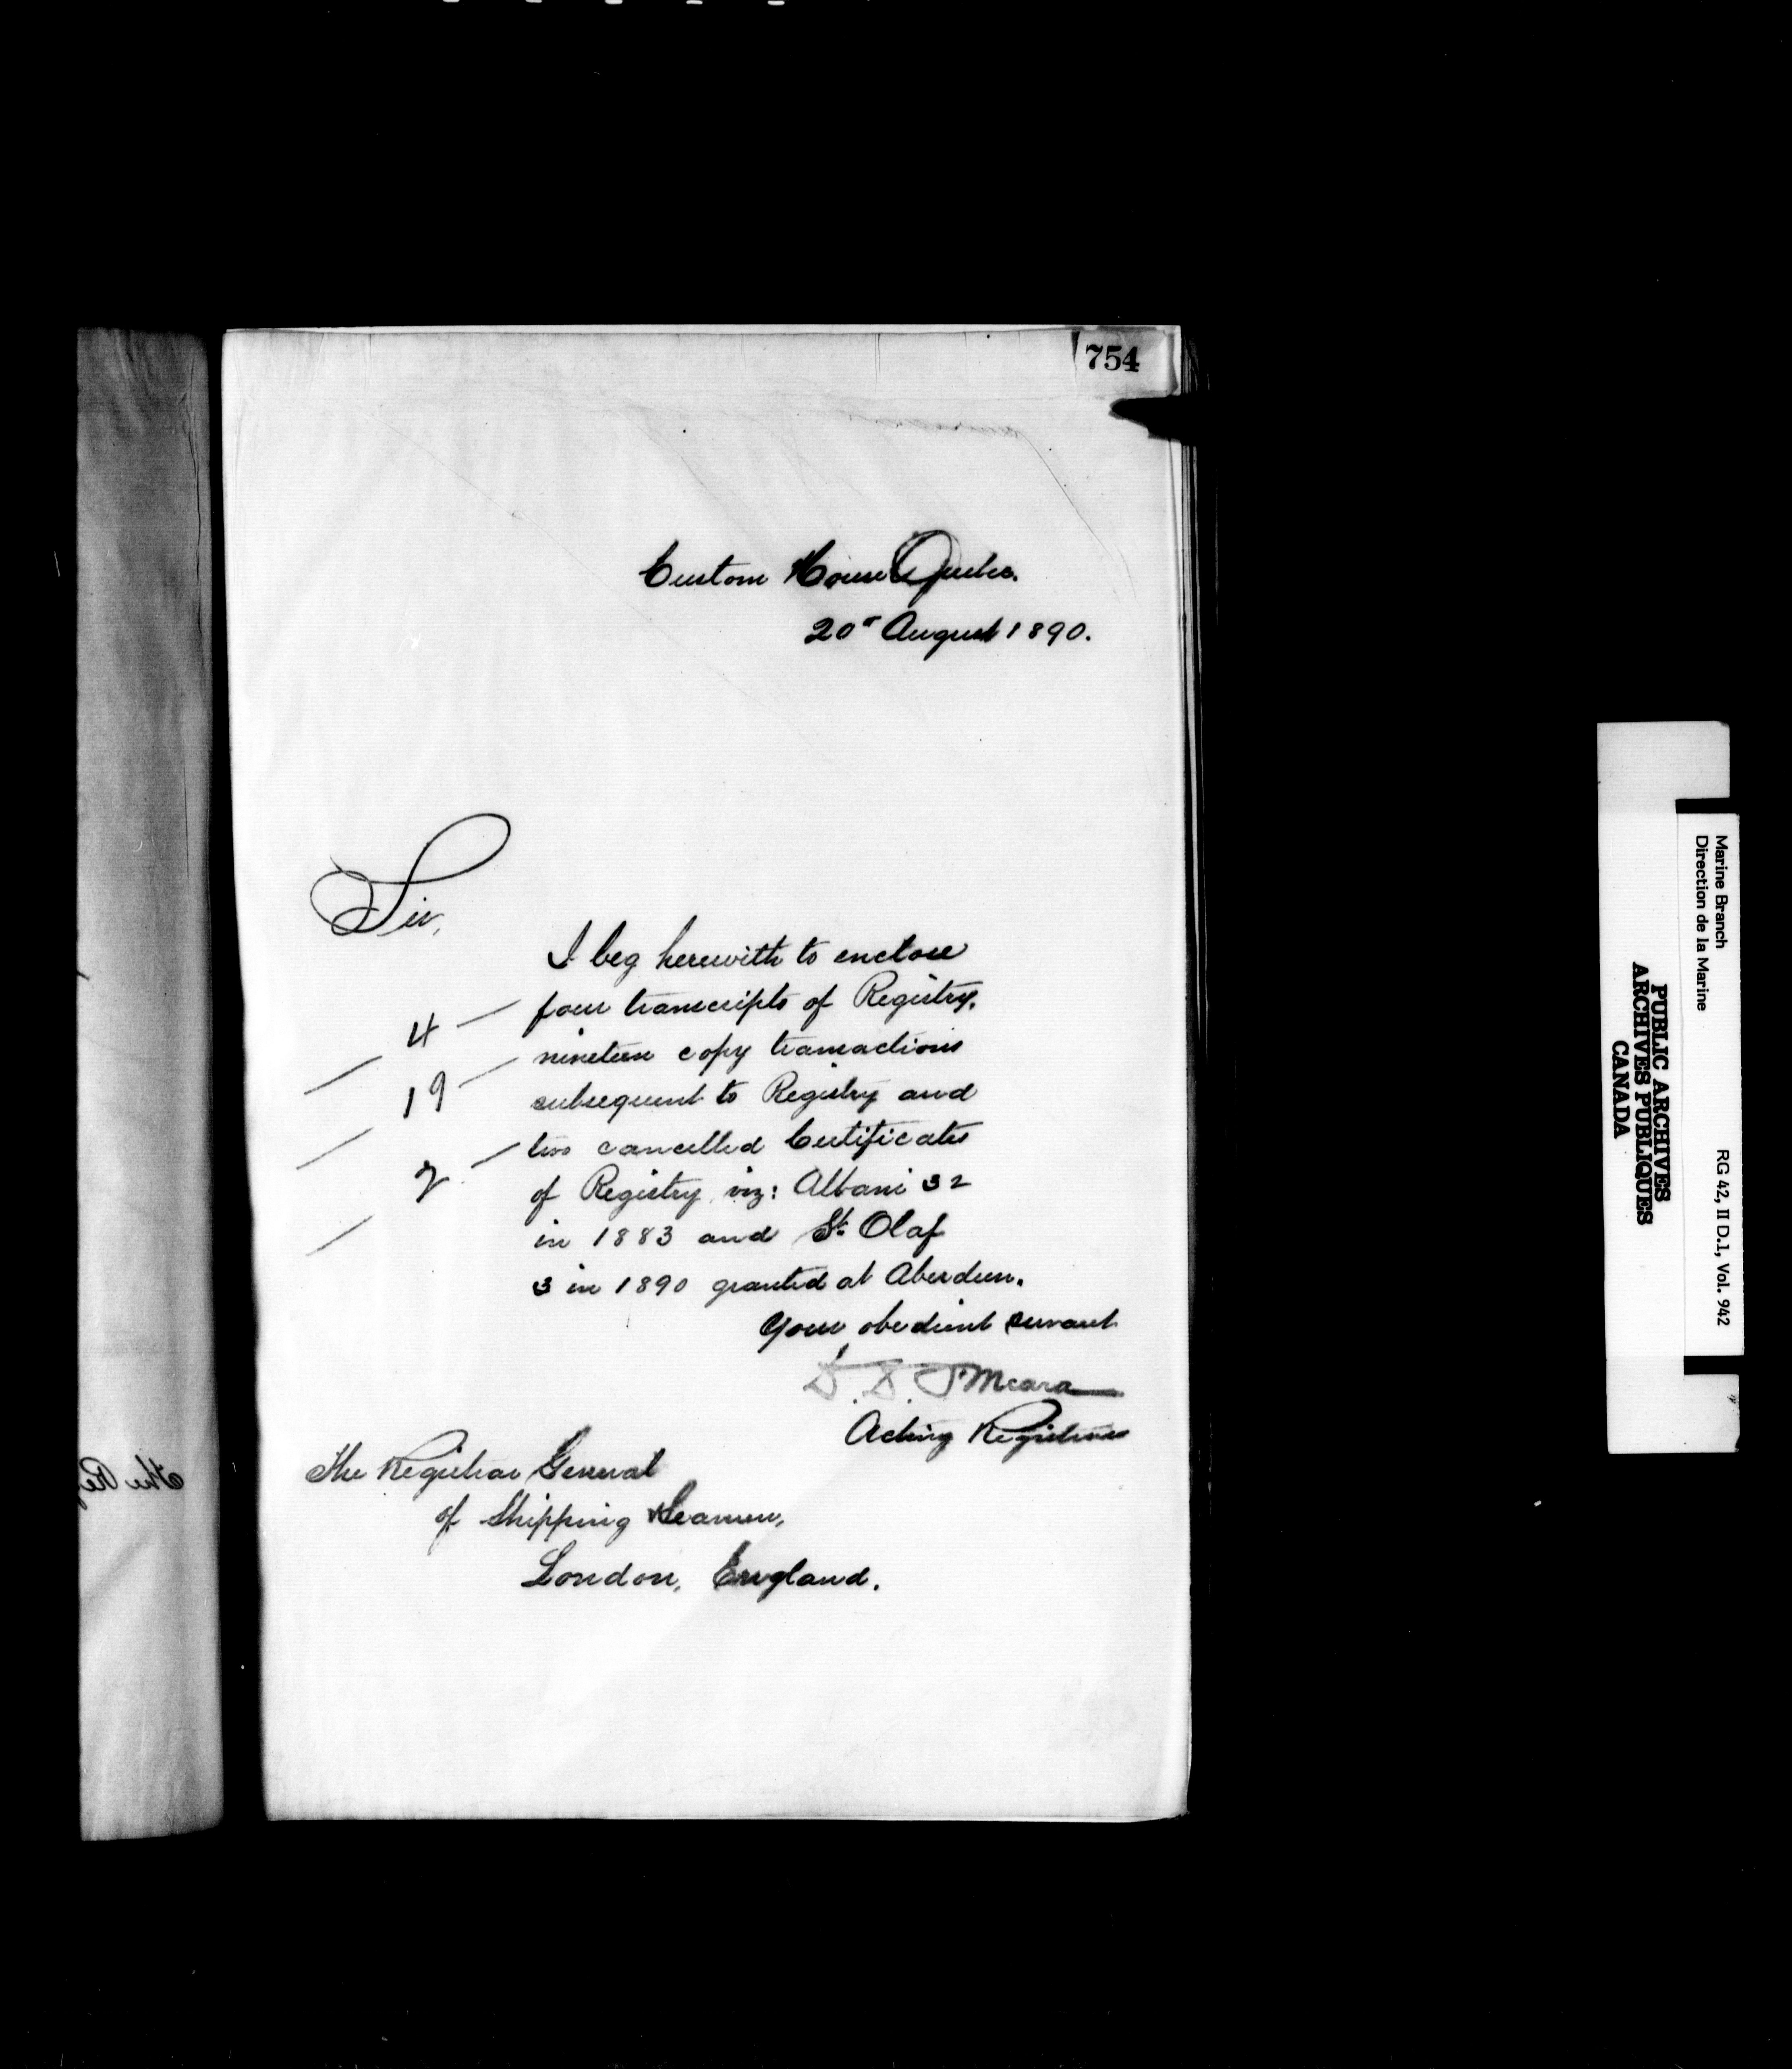 754
Custom House Quebec.
20th August 1890.
Sir,
I beg herewith to enclose
4 — four transcripts of Registry,
19 — nineteen copy transactions
subsequent to Registry and
2 — two cancelled Certificates
of Registry viz: Albani 32
in 1883 and St. Olaf
3 in 1890 granted at Aberdeen.
Your obedient servant
D. D. O'Meara
Acting Registrar
The Registrar General
of Shipping & Seamen,
London, England.
The Reg
Marine Branch
Direction de la Marine
RG 42, II D.1, Vol. 942
PUBLIC ARCHIVES
ARCHIVES PUBLIQUES
CANADA